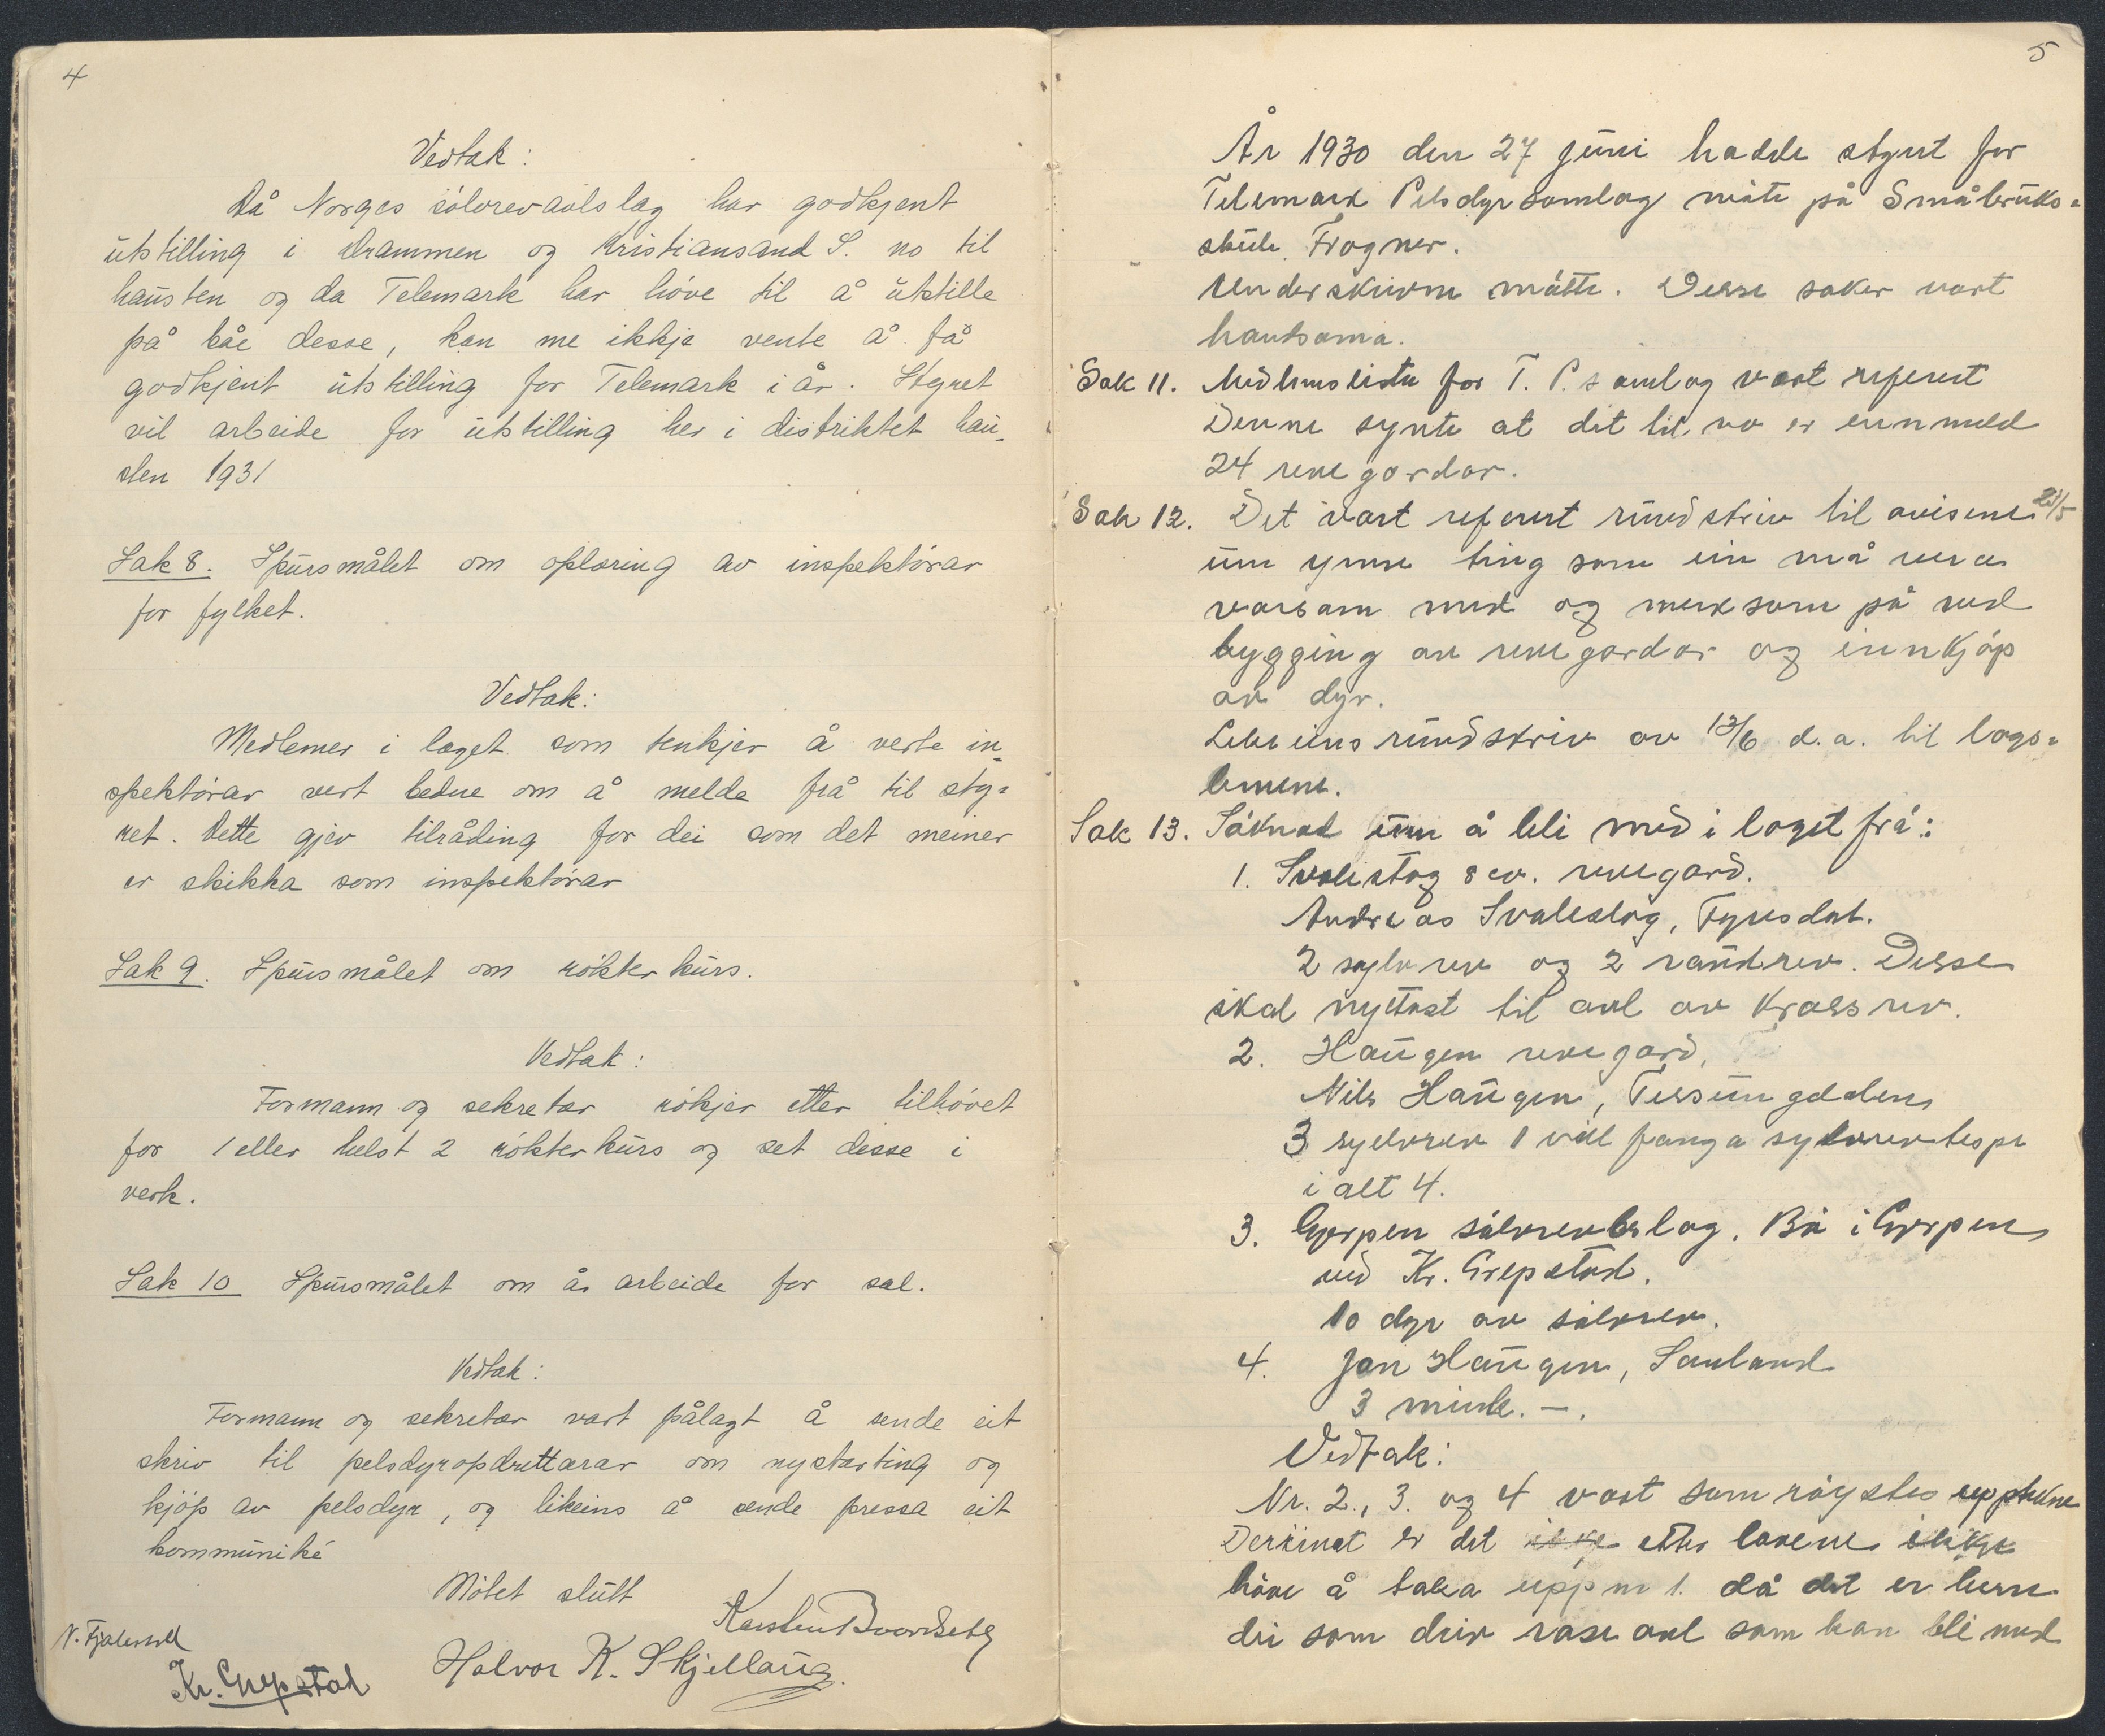 4
Vedtak:
Då Norges sölvrevavlslag har godkjent
utstilling i Drammen og Kristiansand S. no til
hausten og da Telemark har höve til å utstille
på båe desse, kan me ikkje vente å få
godkjent utstilling for Telemark i år. Styret
vil arbeide for utstilling her i distriktet hau-
sten 1931
Sak 8. Spursmålet om oplæring av inspektörar
for fylket.
Vedtak:
Medlemer i laget som tenkjer å verte in-
spektörar vert bedne om å melde frå til sty-
ret. Dette gjev tilråding for dei som det meiner
er skikka som inspektörar
Sak 9. Spursmålet om rökterkurs.
Vedtak:
Formann og sekretær rökjer etter tilhövet
for 1 eller helst 2 rökterkurs og set disse i
verk.
Sak 10 Spursmålet om å arbeide for sal.
Vedtak:
Formann og sekretær vart pålagt å sende eit
skriv til pelsdyropdrettarar om nystarting og
kjöp av pelsdyr, og likeins å sende pressa eit
kommuniké
Mötet slutt
N. Fjalestad
Kr. Grepstad
Halvor K. Skjellaug.
5
År 1930 den 27 juni hadde styret for
Telemark Pelsdyrsamlag möte på Småbruks-
skule Frogner.
Underskrivne mötte. Desse saker vart
hantsama.
Sak 11. Medlemsliste for T. P. samlag vart referert
Denne synte at det til no er innmeld
24 revegardar.
Sak 12. Det vart referert rundskriv til avisene
um ymse ting som ein må vera
varsam med og merksam på ved
bygging av revegardar og innkjöp
av dyr.
Likeeins rundskriv av 13/6 d.a. til lags-
lemene.
Sak 13. Söknad um å bli med i laget frå:
1. Svalestog rev. revegard.
Andreas Svalestog, Fyresdal.
2 sylvrev og 2 raudrev. Desse
skal nyttast til avl av kross rev.
2. Haugen revegard,
Nils Haugen, Tessungdalen
3 sylvrev 1 vill fanga sylvrevtespe
i alt 4.
3. Gjerpen sölvrevlag. Bö i Gjerpen
ved Kr. Grepstad.
10 dyr av sölvrev.
4. Jon Haugen, Sauland
3 mink. —.
Vedtak:
Nr. 2., 3. og 4 vart samröystes upptekne
Derimot er det etter lovene ikkje
höve å taka upp nr 1. då det er berre
dei som driv raseavl som kan bli med